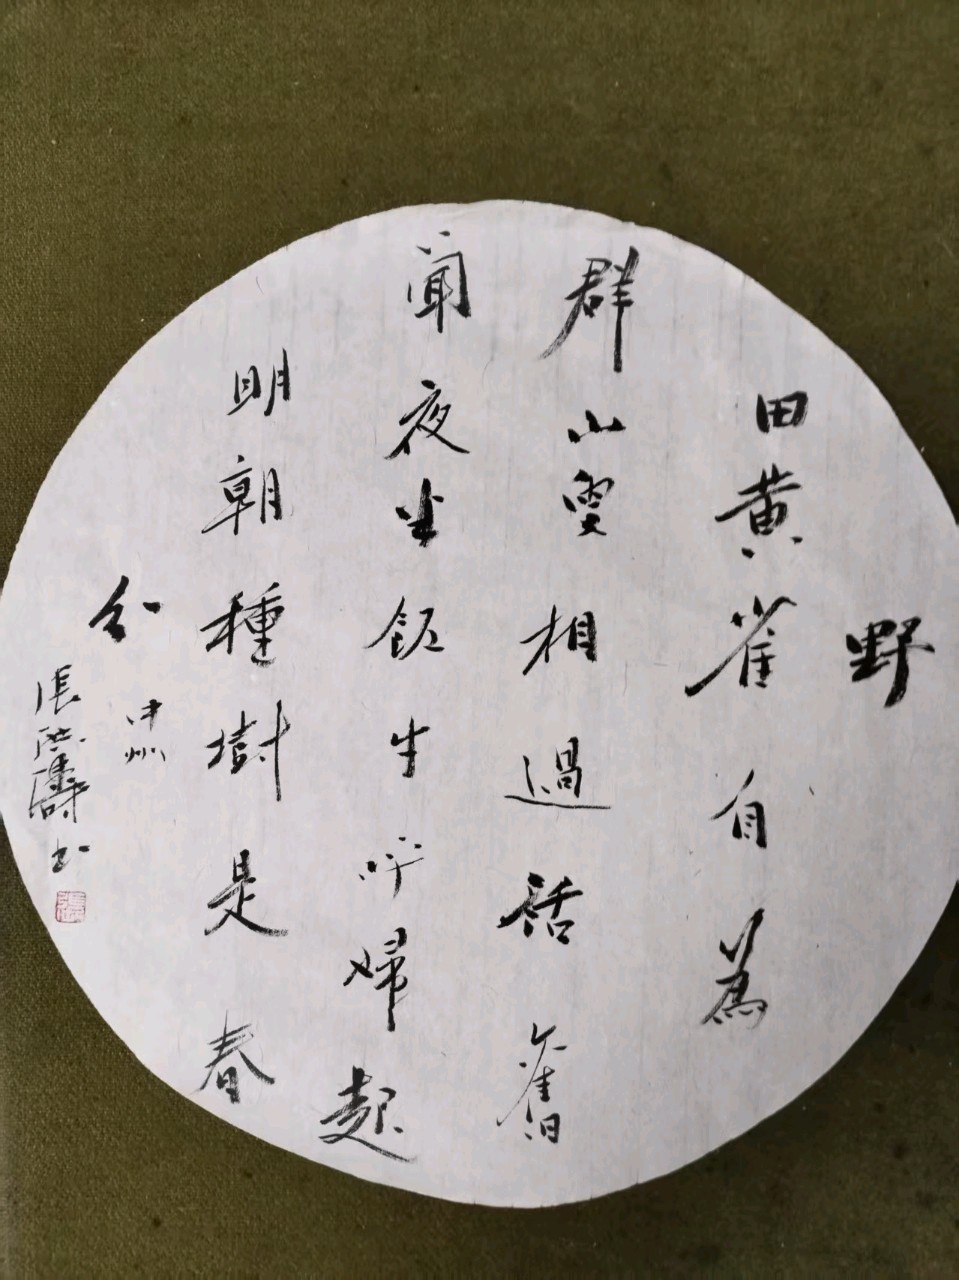 野
田黄雀自為
群山叟相過話舊
聞夜半飯牛呼婦起
明朝種樹是春
分
張洪濤书
張